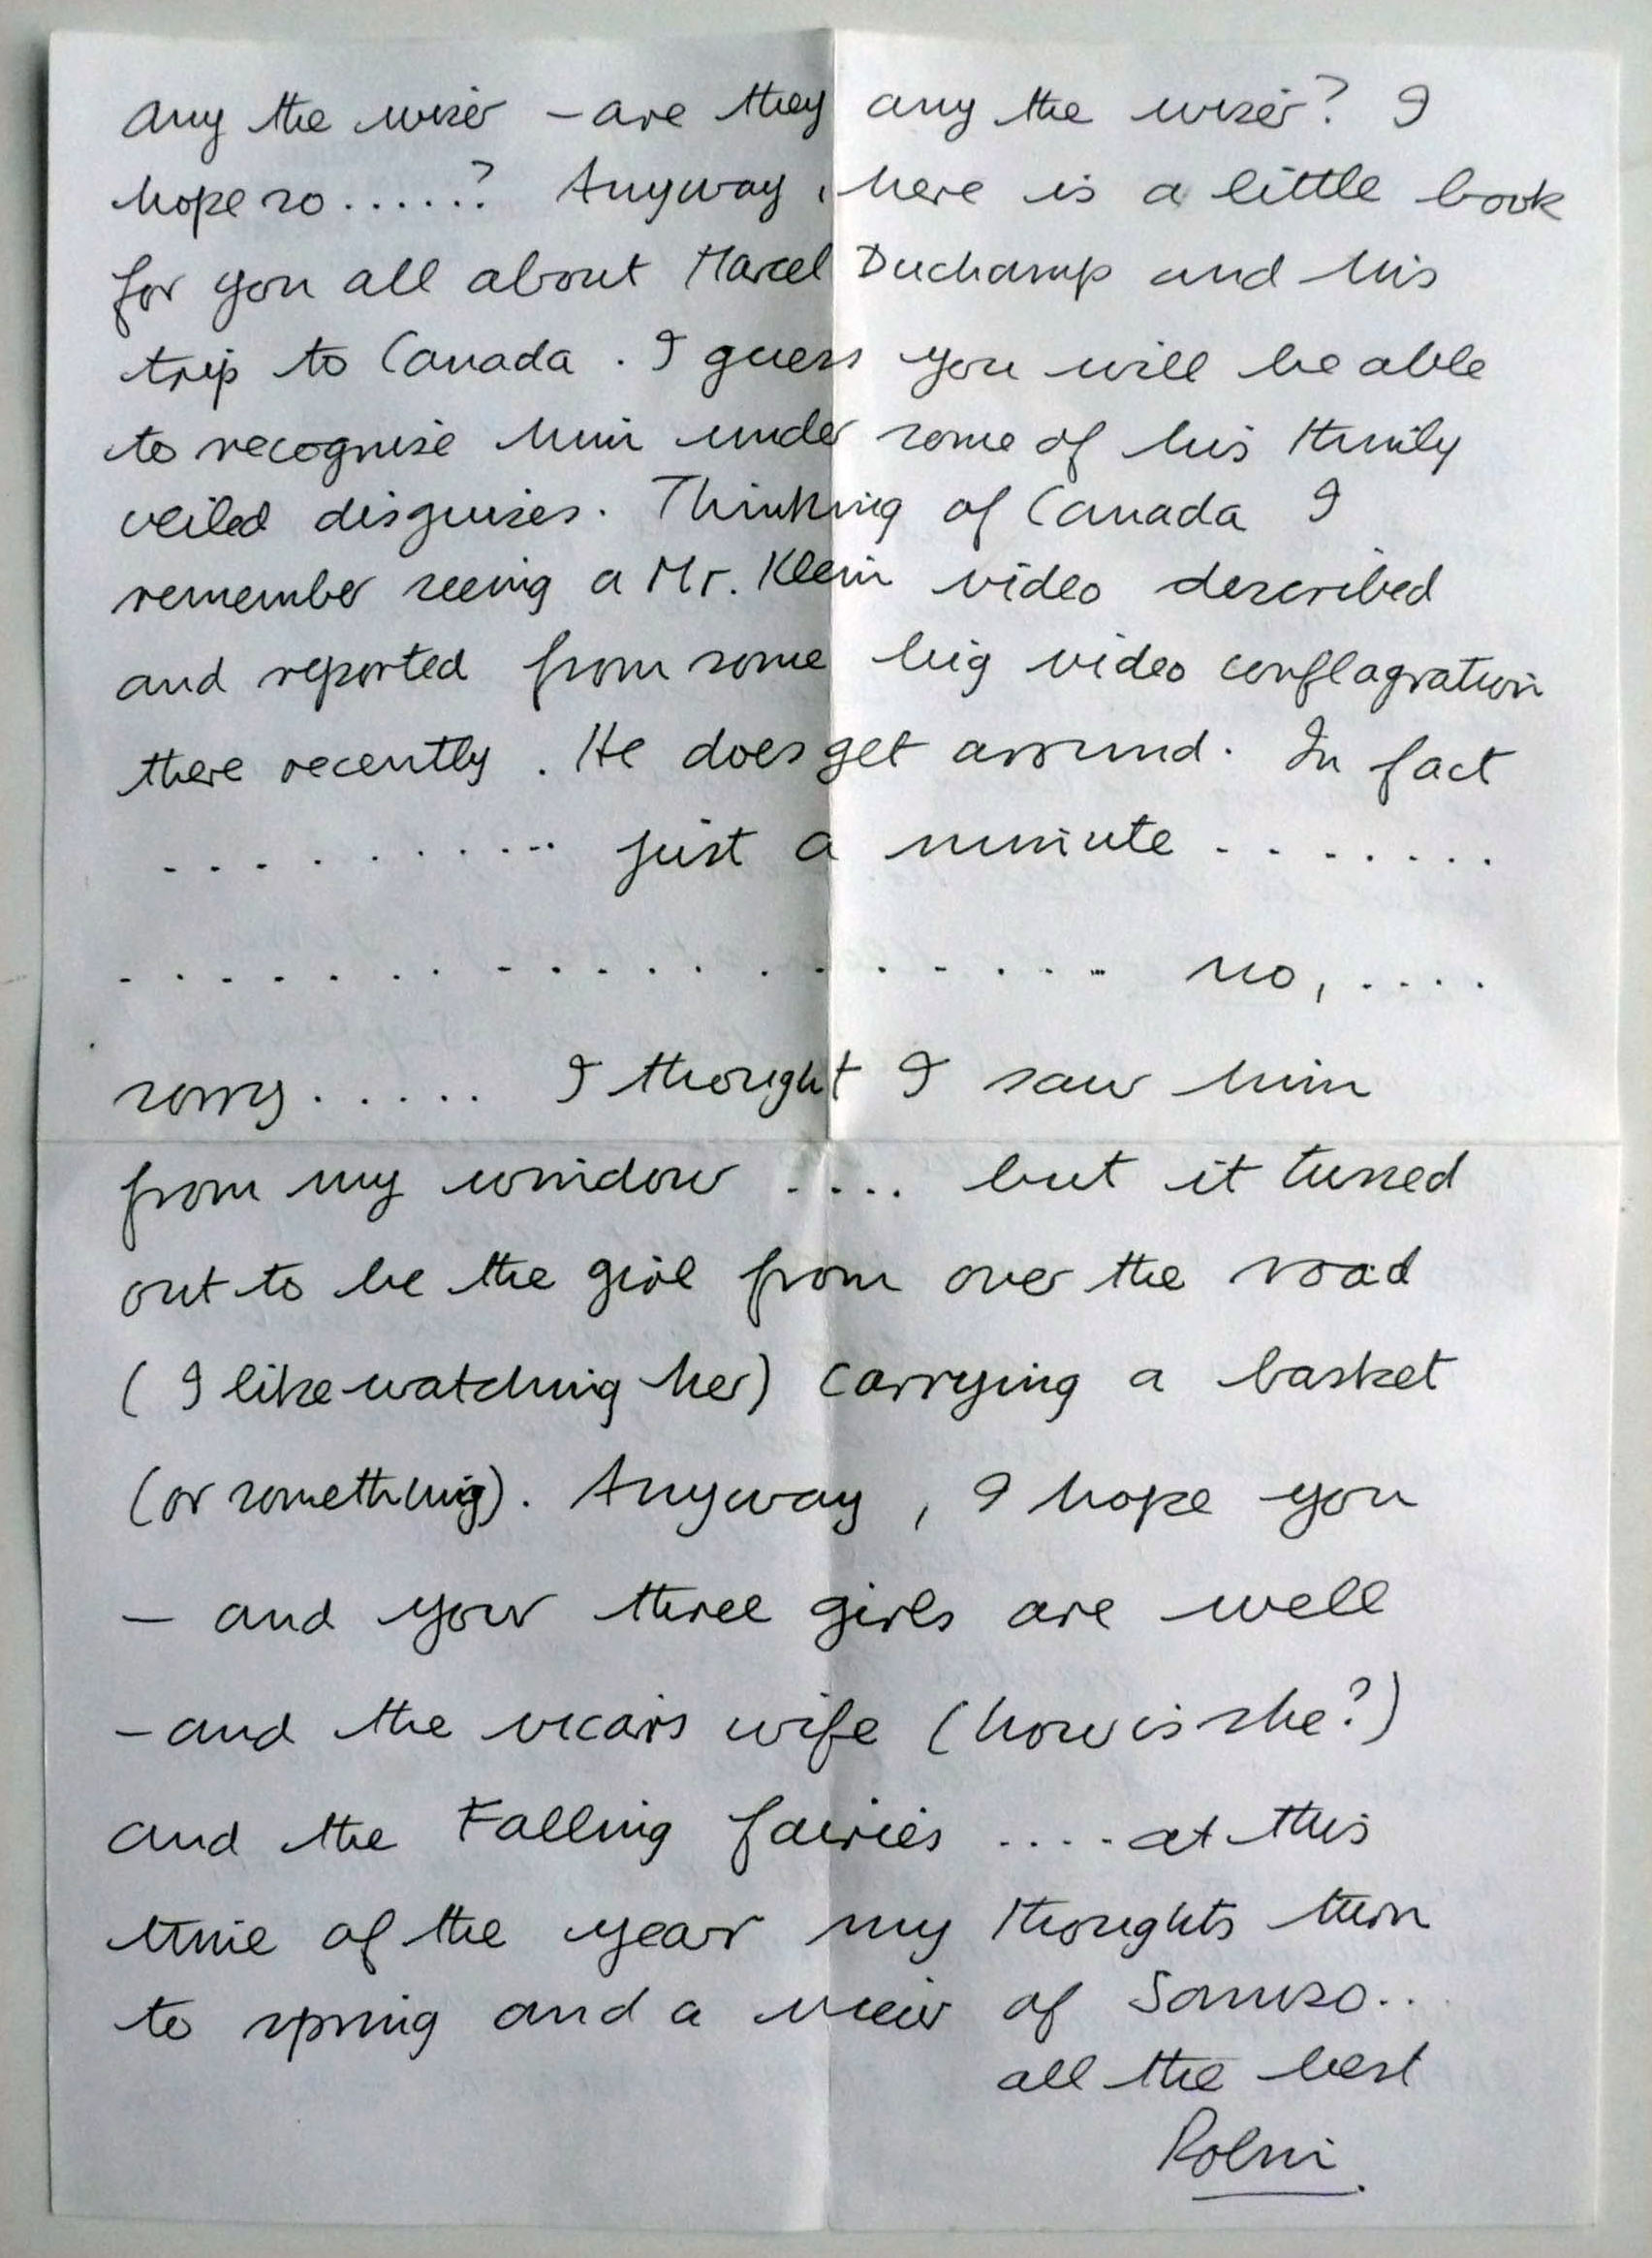 any the wiser – are they any the wiser? I
hope so......? Anyway, here is a little book
for you all about Marcel Duchamp and his
trip to Canada. I guess you will be able
to recognise him under some of his thinly
veiled disguises. Thinking of Canada I
remember seeing a Mr. Klein video described
and reported from some big video conflagration
there recently. He does get around. In fact
........... just a minute .......
..................... no, ....
sorry..... I thought I saw him
from my window .... but it turned
out to be the girl from over the road
(I like watching her) carrying a basket
(or something). Anyway, I hope you
– and your three girls are well
– and the vicars wife (how is she?)
and the Falling fairies .... at this
time of the year my thoughts turn
to spring and a view of
all the best
Robin